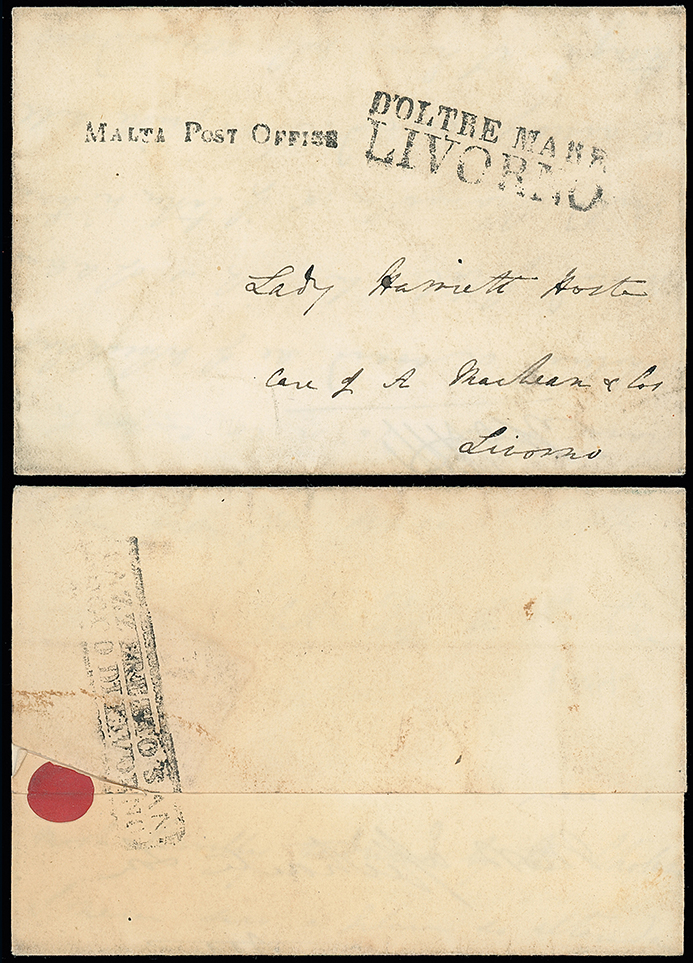 MALTA POST OFFICE
D'OLTRE MARE
LIVORNO
Lady Harriett Hoste
Care of A MacBean & Cos
Livorno